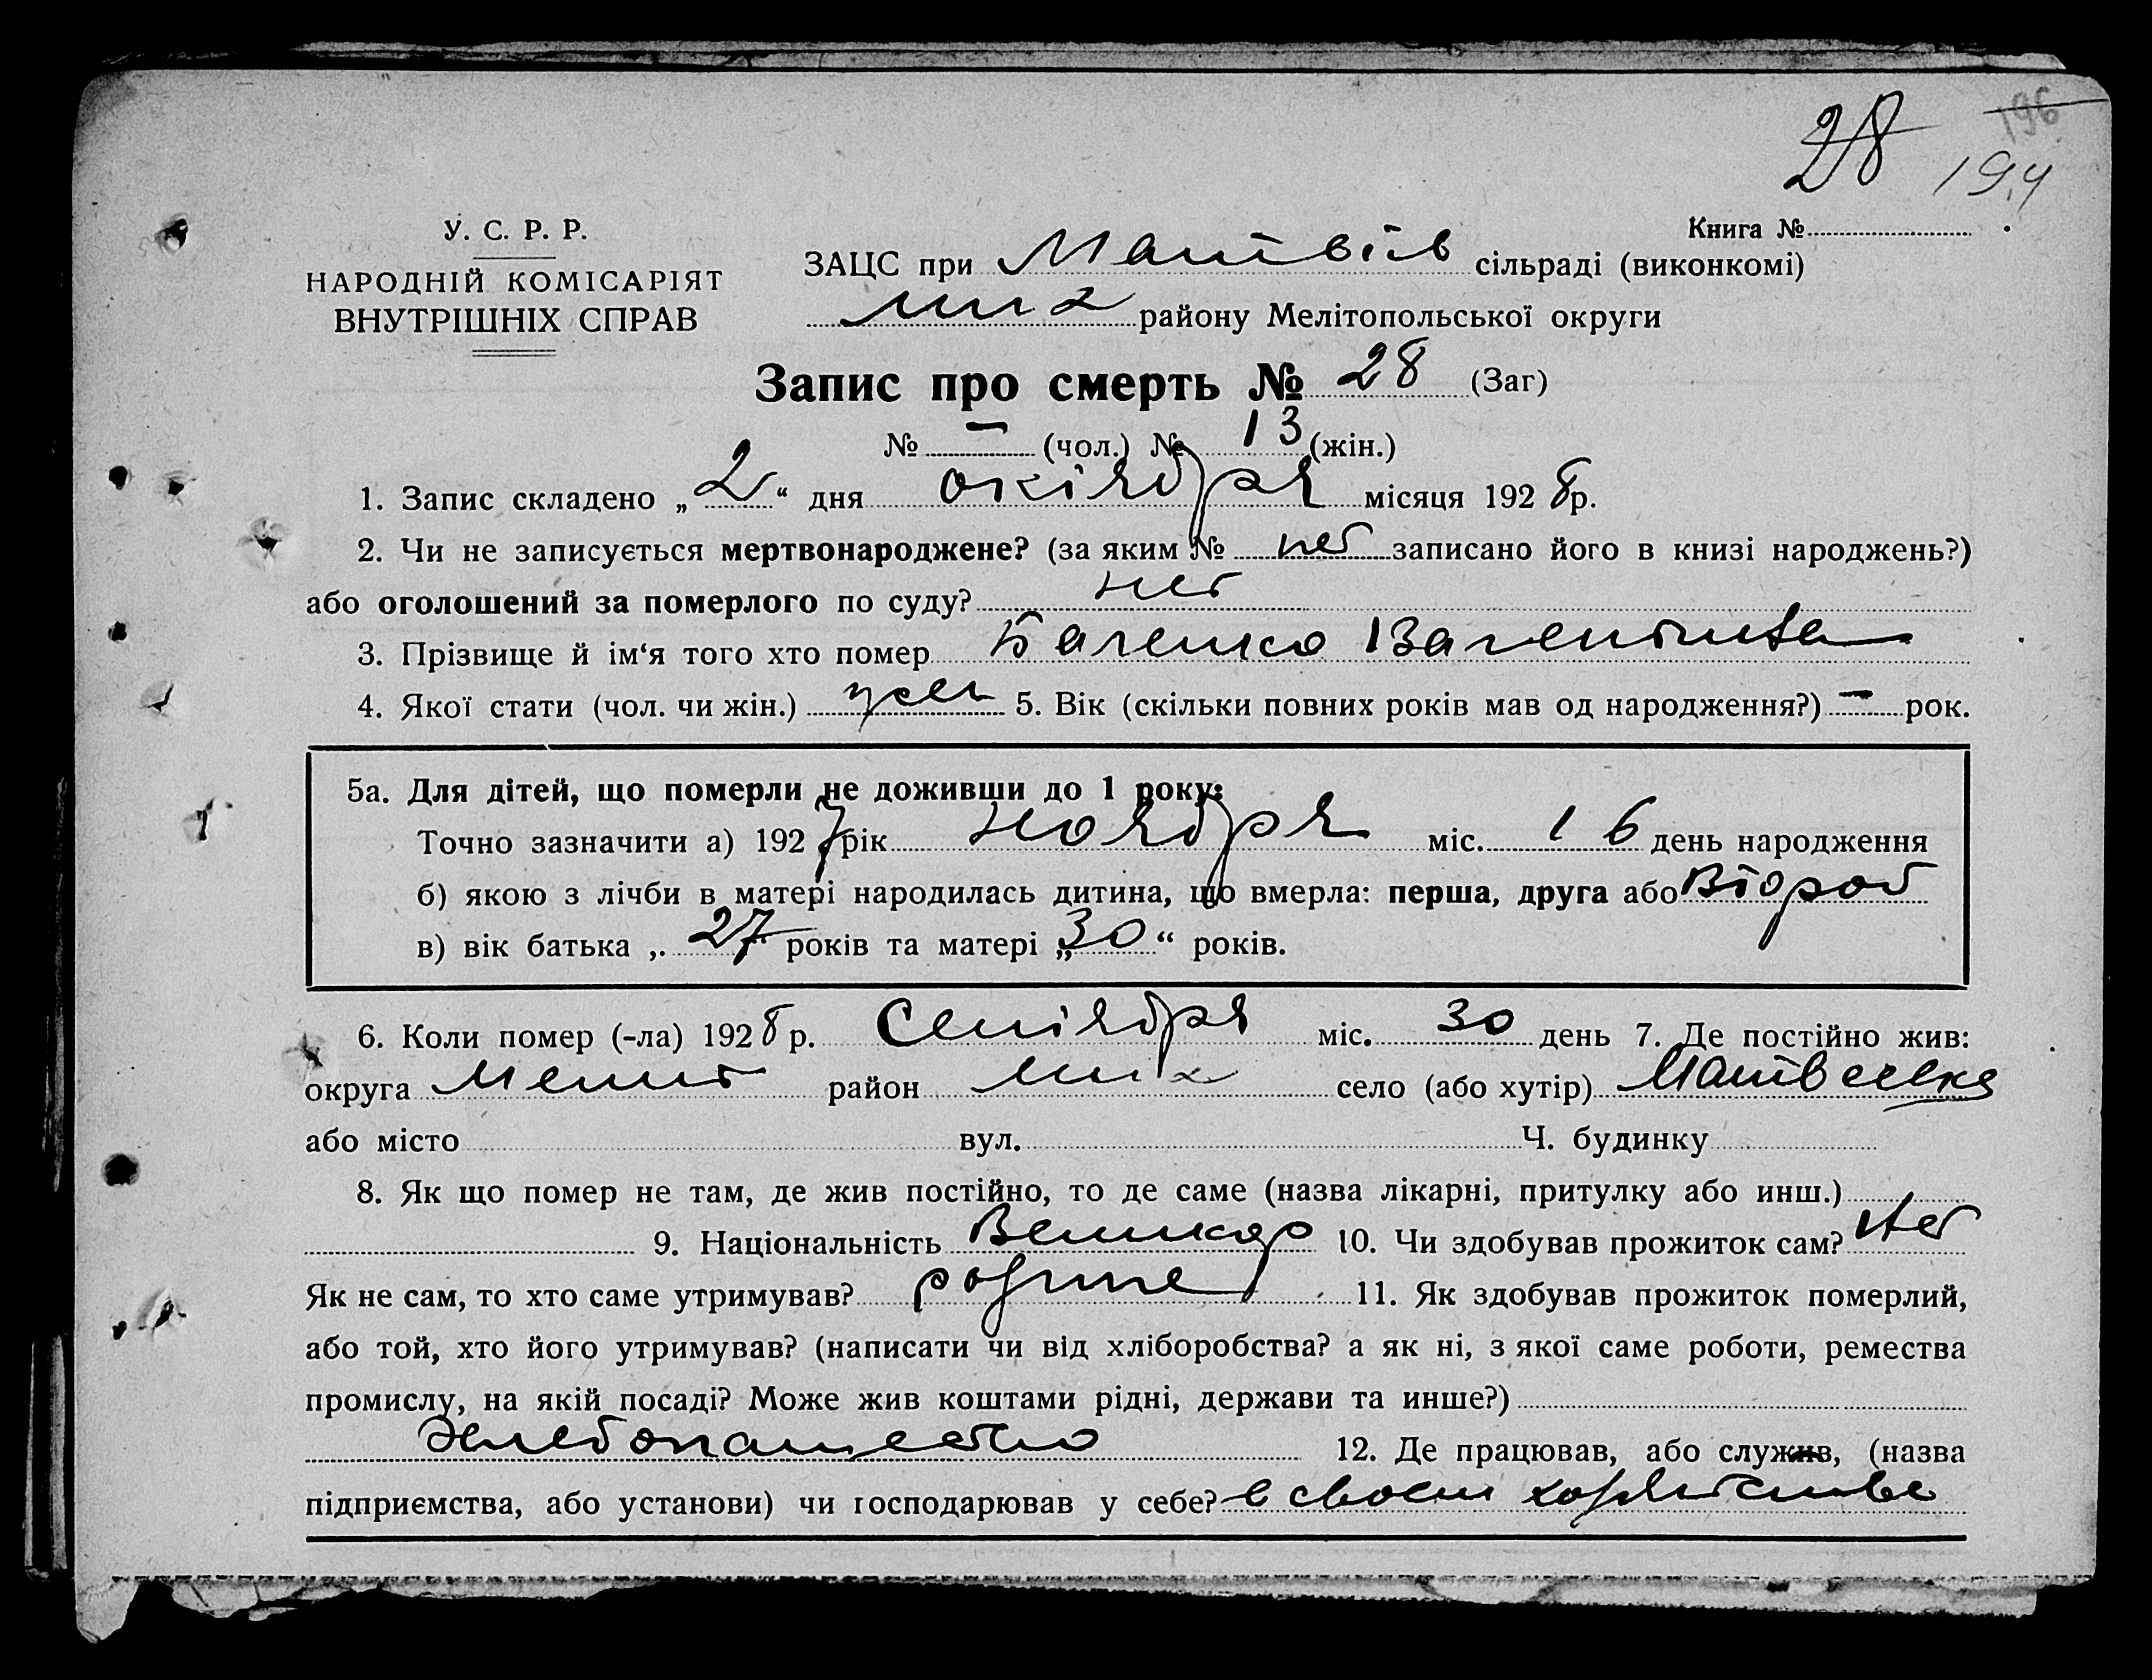 196
28 194
У. С. Р. Р.
Книга №
НАРОДНІЙ КОМІСАРІЯТ
ВНУТРІШНІХ СПРАВ
ЗАЦС при Матвіїв сільраді (виконкомі)
району Мелітопольської округи
Запис про смерть № 28 (Заг)
№ – (чол.) № 13 (жін.)
1. Запис складено „2“ дня октября місяця 1928 р.
2. Чи не записується мертвонароджене? (за яким № нет записано його в книзі народжень?)
або оголошений за померлого по суду? нет
3. Прізвище й ім‘я того хто помер Валентина
4. Якої стати (чол. чи жін.) жен 5. Вік (скільки повних років мав од народження?) – рок.
5а. Для дітей, що померли не доживши до 1 року:
Точно зазначити а) 1927 рік ноября міс. 16 день народження
б) якою з лічби в матері народилась дитина, що вмерла: перша, друга або второй
в) вік батька „ 27 років та матері „30“ років.
6. Коли помер (-ла) 1928 р. Сентября міс. 30 день 7. Де постійно жив:
округа Мелит район село (або хутір) Матвеевка
або місто вул. Ч. будинку
8. Як що помер не там, де жив постійно, то де саме (назва лікарні, притулку або инш.)
9. Національність Великор 10. Чи здобував прожиток сам? Нет
Як не сам, то хто саме утримував? 11. Як здобував прожиток померлий,
або той, хто його утримував? (написати чи від хліборобства? а як ні, з якої саме роботи, ремества
промислу, на якій посаді? Може жив коштами рідні, держави та инше?)
Хлебопашество 12. Де працював, або служив, (назва
підприємства, або установи) чи господарював у себе? в своем хозяйстве